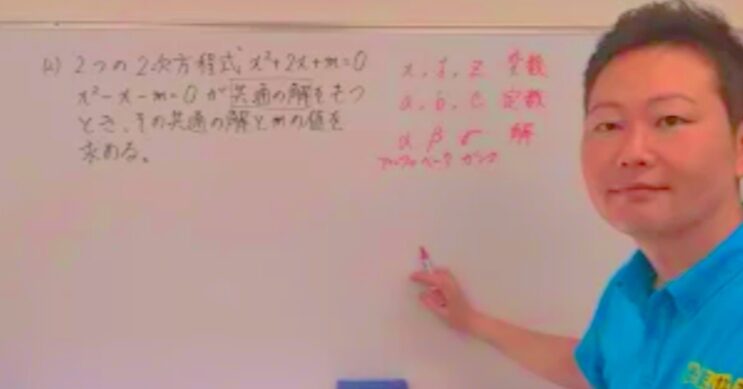 (2) 2つの2次方程式 x²+2x+m=0
x²-x-m=0 が共通の解をもつ
とき、その共通の解とmの値を
求める。
x, y, z 変数
a, b, c 定数
α β γ 解
アルファ ベータ ガンマ